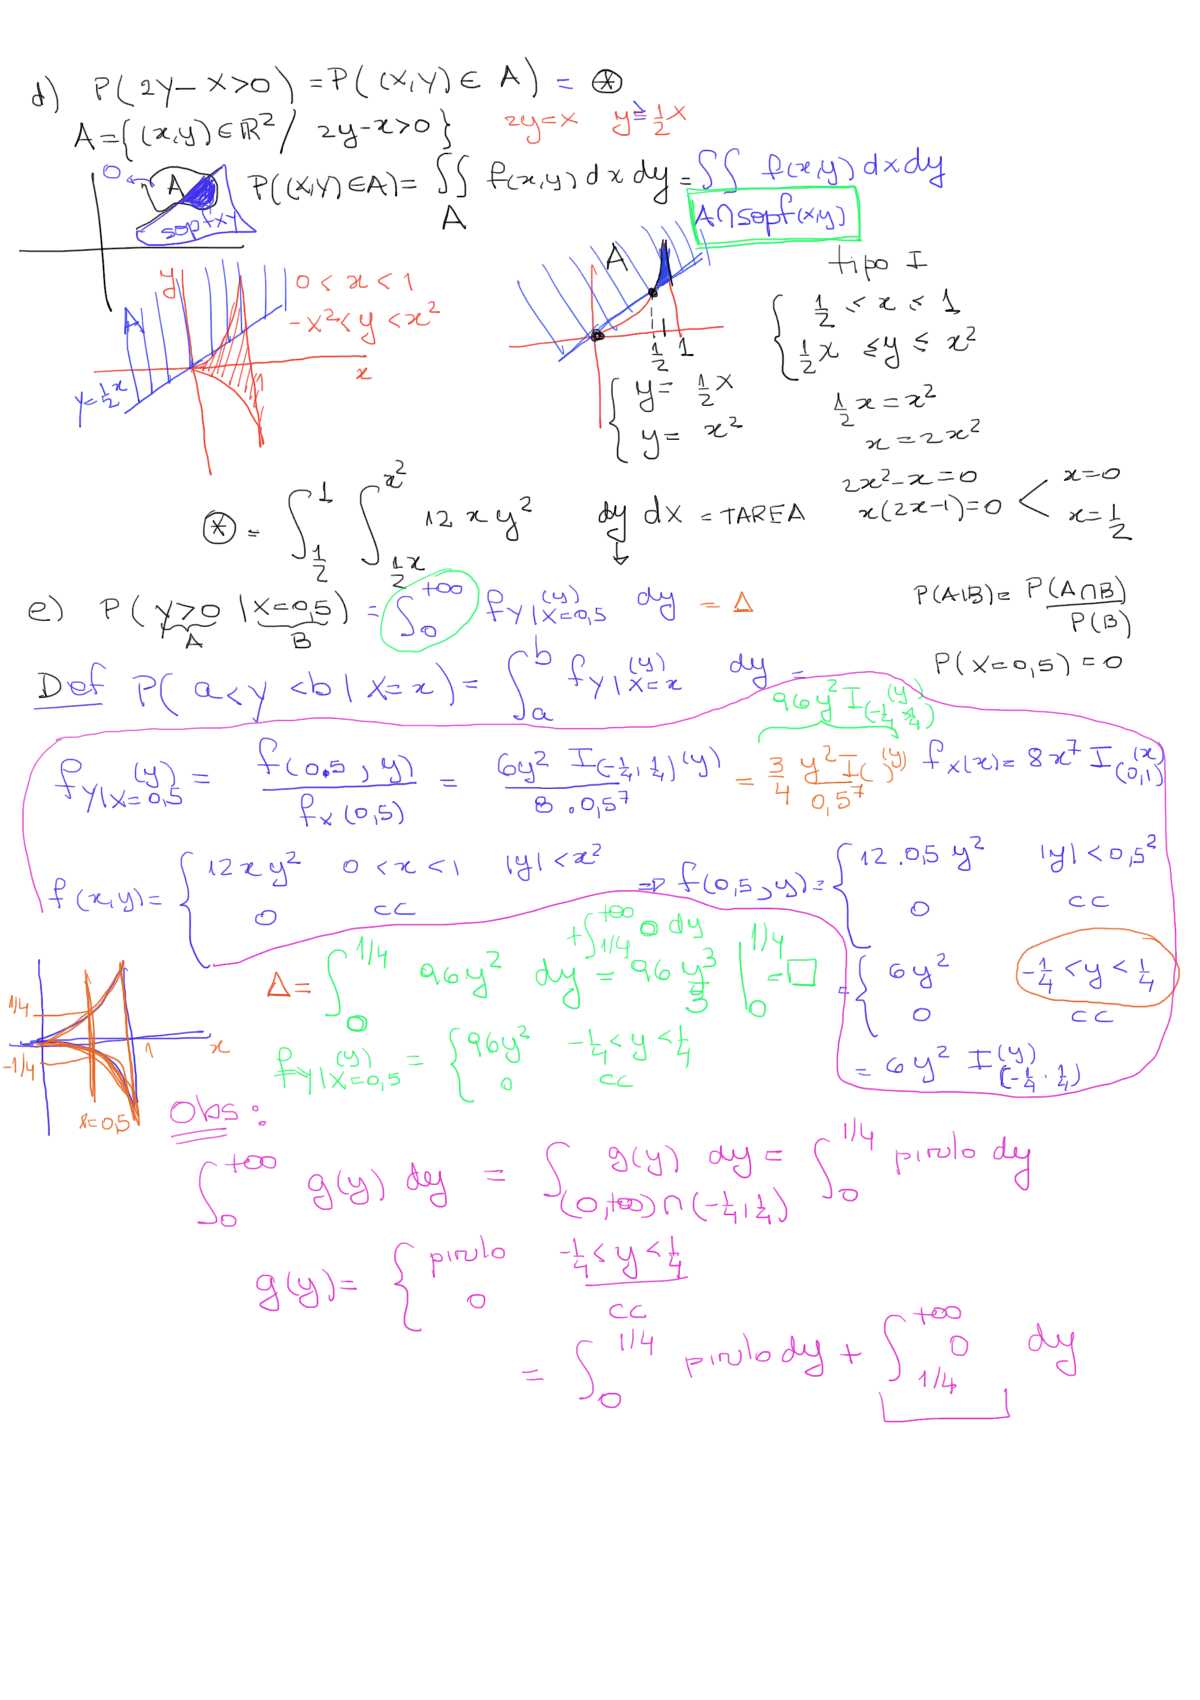 d) P(2Y-X>0) = P((X,Y) ∈ A) = ⊛
A={(x,y)∈ℝ²/ 2y-x>0} 2y=x y≥½x
0 A sopfxy
P((X,Y)∈A)= ∬_A f(x,y) dx dy = ∬_{A∩sopf(x,y)} f(x,y) dx dy
y 0 < x < 1
-x² < y < x²
A y=½x x
A ½ 1
{ y= ½x
y= x²
tipo I
{ ½ ≤ x ≤ 1
½x ≤ y ≤ x²
½x = x²
x = 2x²
2x²-x=0
x(2x-1)=0 < x=0
x=½
⊛ = ∫_{½}^{1} ∫_{½x}^{x²} 12xy² dy dx = TAREA
e) P(Y>0 | X=0,5) = ∫_0^{+∞} f_{Y|X=0,5}(y) dy = Δ
A B
P(A|B)= P(A∩B)/P(B)
P(X=0,5)=0
Def P(a<Y<b | X=x) = ∫_a^b f_{Y|X=x}(y) dy =
96y² I_{(-¼,¼)}(y)
f_{Y|X=0,5}(y) = f(0.5,y)/f_X(0,5) = 6y² I_{(-¼,¼)}(y)/8.0,5⁷ = ¾ y² I( )(y)/0,5⁷ f_X(x)= 8x⁷ I_{(0,1)}(x)
f(x,y)= { 12xy² 0<x<1 |y|<x²
0 cc
⇒ f(0,5,y)= { 12.0,5 y² |y|<0,5²
0 cc
= { 6y² -¼<y<¼
0 cc
= 6y² I_{(-¼,¼)}(y)
1/4
-1/4
1 x
x=0,5
Δ= ∫_0^{1/4} 96y² dy + ∫_{1/4}^{+∞} 0 dy = 96 y³/3 |_0^{1/4} = □
f_{Y|X=0,5}(y) = { 96y² -¼<y<¼
0 cc
Obs:
∫_0^{+∞} g(y) dy = ∫_{(0,+∞)∩(-¼,¼)} g(y) dy = ∫_0^{1/4} pirulo dy
g(y)= { pirulo -¼<y<¼
0 cc
= ∫_0^{1/4} pirulo dy + ∫_{1/4}^{+∞} 0 dy